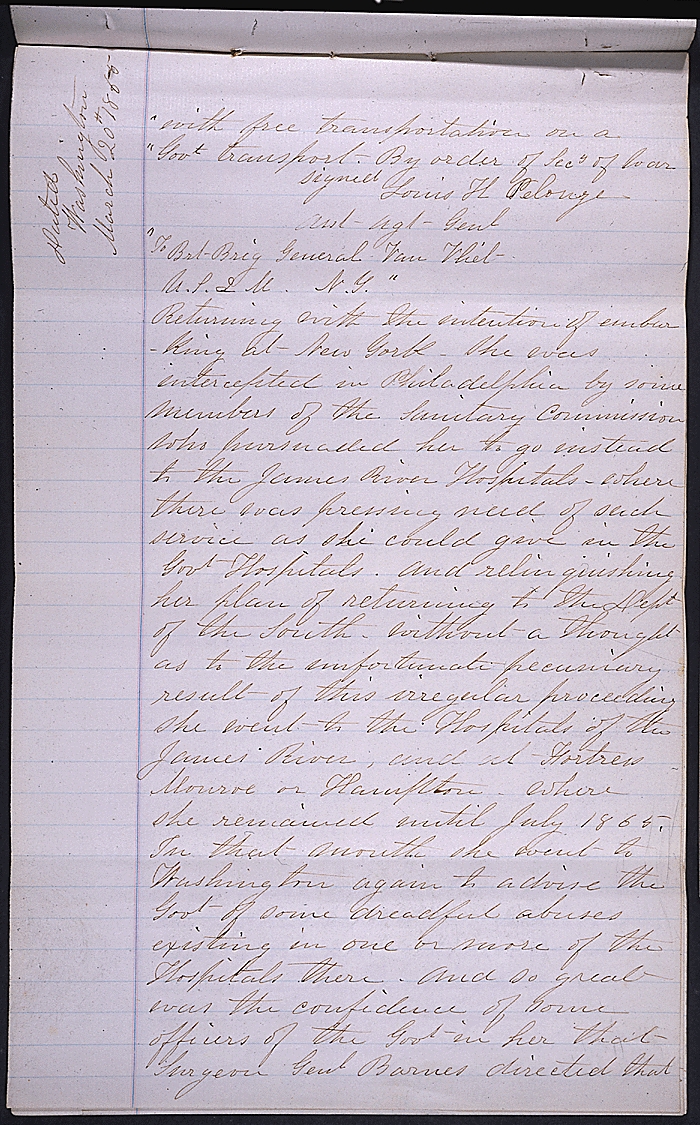 Dated
Washington
March 20th 1865
"with free transportation on a
"Govt transport - By order of Secy of War
signed Louis H Pelouze
asst agt Genl
"To Bvt-Brig General Van Vliet -
U.S. Q M. N.Y."
Returning with the intention of embar
-king at New York - she was
intercepted in Philadelphia by some
members of the Sanitary Commission
who pursuaded her to go instead
to the James River Hospitals - where
there was pressing need of such
service as she could give in the
Govt Hospitals. and relinquishing
her plan of returning to the Dept
of the South - without a thought
as to the unfortunate pecuniary
result of this irregular proceeding
she went to the Hospitals of the
James River, and at Fortress
Monroe or Hampton - where
she remained until July 1865.
In that month she went to
Washington again to advise the
Govt of some dreadful abuses
existing in one or more of the
Hospitals there. And so great
was the confidence of some
officers of the Govt in her that
Surgeon Genl Barnes directed that